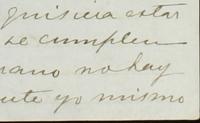 quisiera estar
se cumplen
mano no hay
ute yo mismo